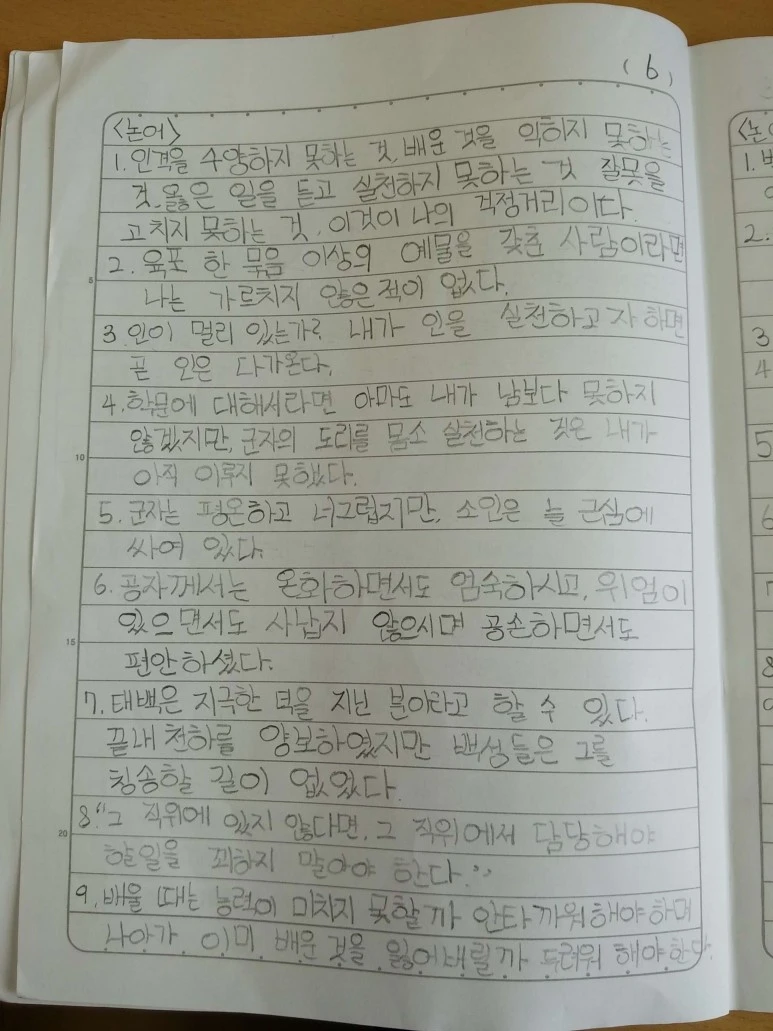 (6)
<논어>
1. 인격을 수양하지 못하는 것, 배운 것을 익히지 못하는
것, 옳은 일을 듣고 실천하지 못하는 것 잘못을
고치지 못하는 것. 이것이 나의 걱정거리이다.
2. 육포 한 묶음 이상의 예물을 갖춘 사람이라면
나는 가르치지 않은 적이 없다.
3. 인이 멀리 있는가? 내가 인을 실천하고자 하면
곧 인은 다가온다.
4. 학문에 대해서라면 아마도 내가 남보다 못하지
않겠지만, 군자의 도리를 몸소 실천하는 것은 내가
아직 이루지 못했다.
5. 군자는 평온하고 너그럽지만, 소인은 늘 근심에
싸여 있다.
6. 공자께서는 온화하면서도 엄숙하시고, 위엄이
있으면서도 사납지 않으시며 공손하면서도
편안하셨다.
7. 태백은 지극한 덕을 지닌 분이라고 할 수 있다.
끝내 천하를 양보하였지만 백성들은 그를
칭송할 길이 없었다.
8. "그 직위에 있지 않다면, 그 직위에서 담당해야
할일을 꾀하지 말아야 한다."
9. 배울 때는 능력이 미치지 못할까 안타까워해야 하며
나아가 이미 배운 것을 잃어버릴까 두려워 해야한다.
5
10
15
20
<논
1.
2.
3
4
5
6
8